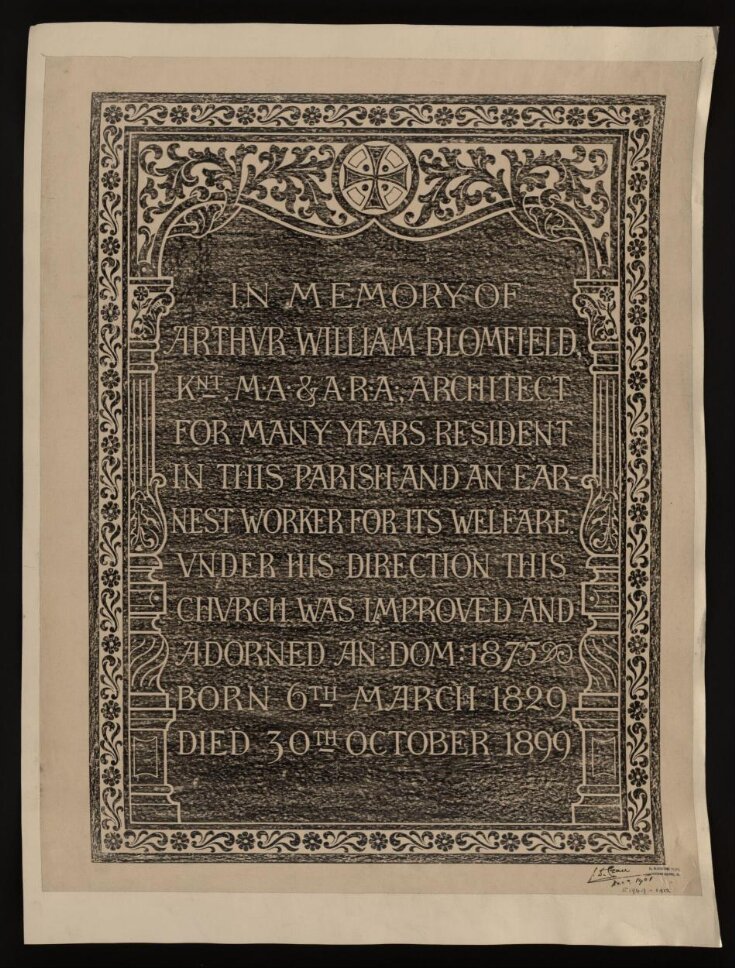 IN MEMORY OF
ARTHVR·WILLIAM·BLOMFIELD,
KNT, M·A·&·A·R·A·; ARCHITECT
FOR MANY YEARS RESIDENT
IN THIS PARISH·AND AN EAR-
NEST WORKER FOR ITS WELFARE.
VNDER HIS DIRECTION THIS
CHVRCH WAS IMPROVED AND
ADORNED AN:DOM:1875
BORN 6TH MARCH 1829
DIED 30TH OCTOBER 1899
1901